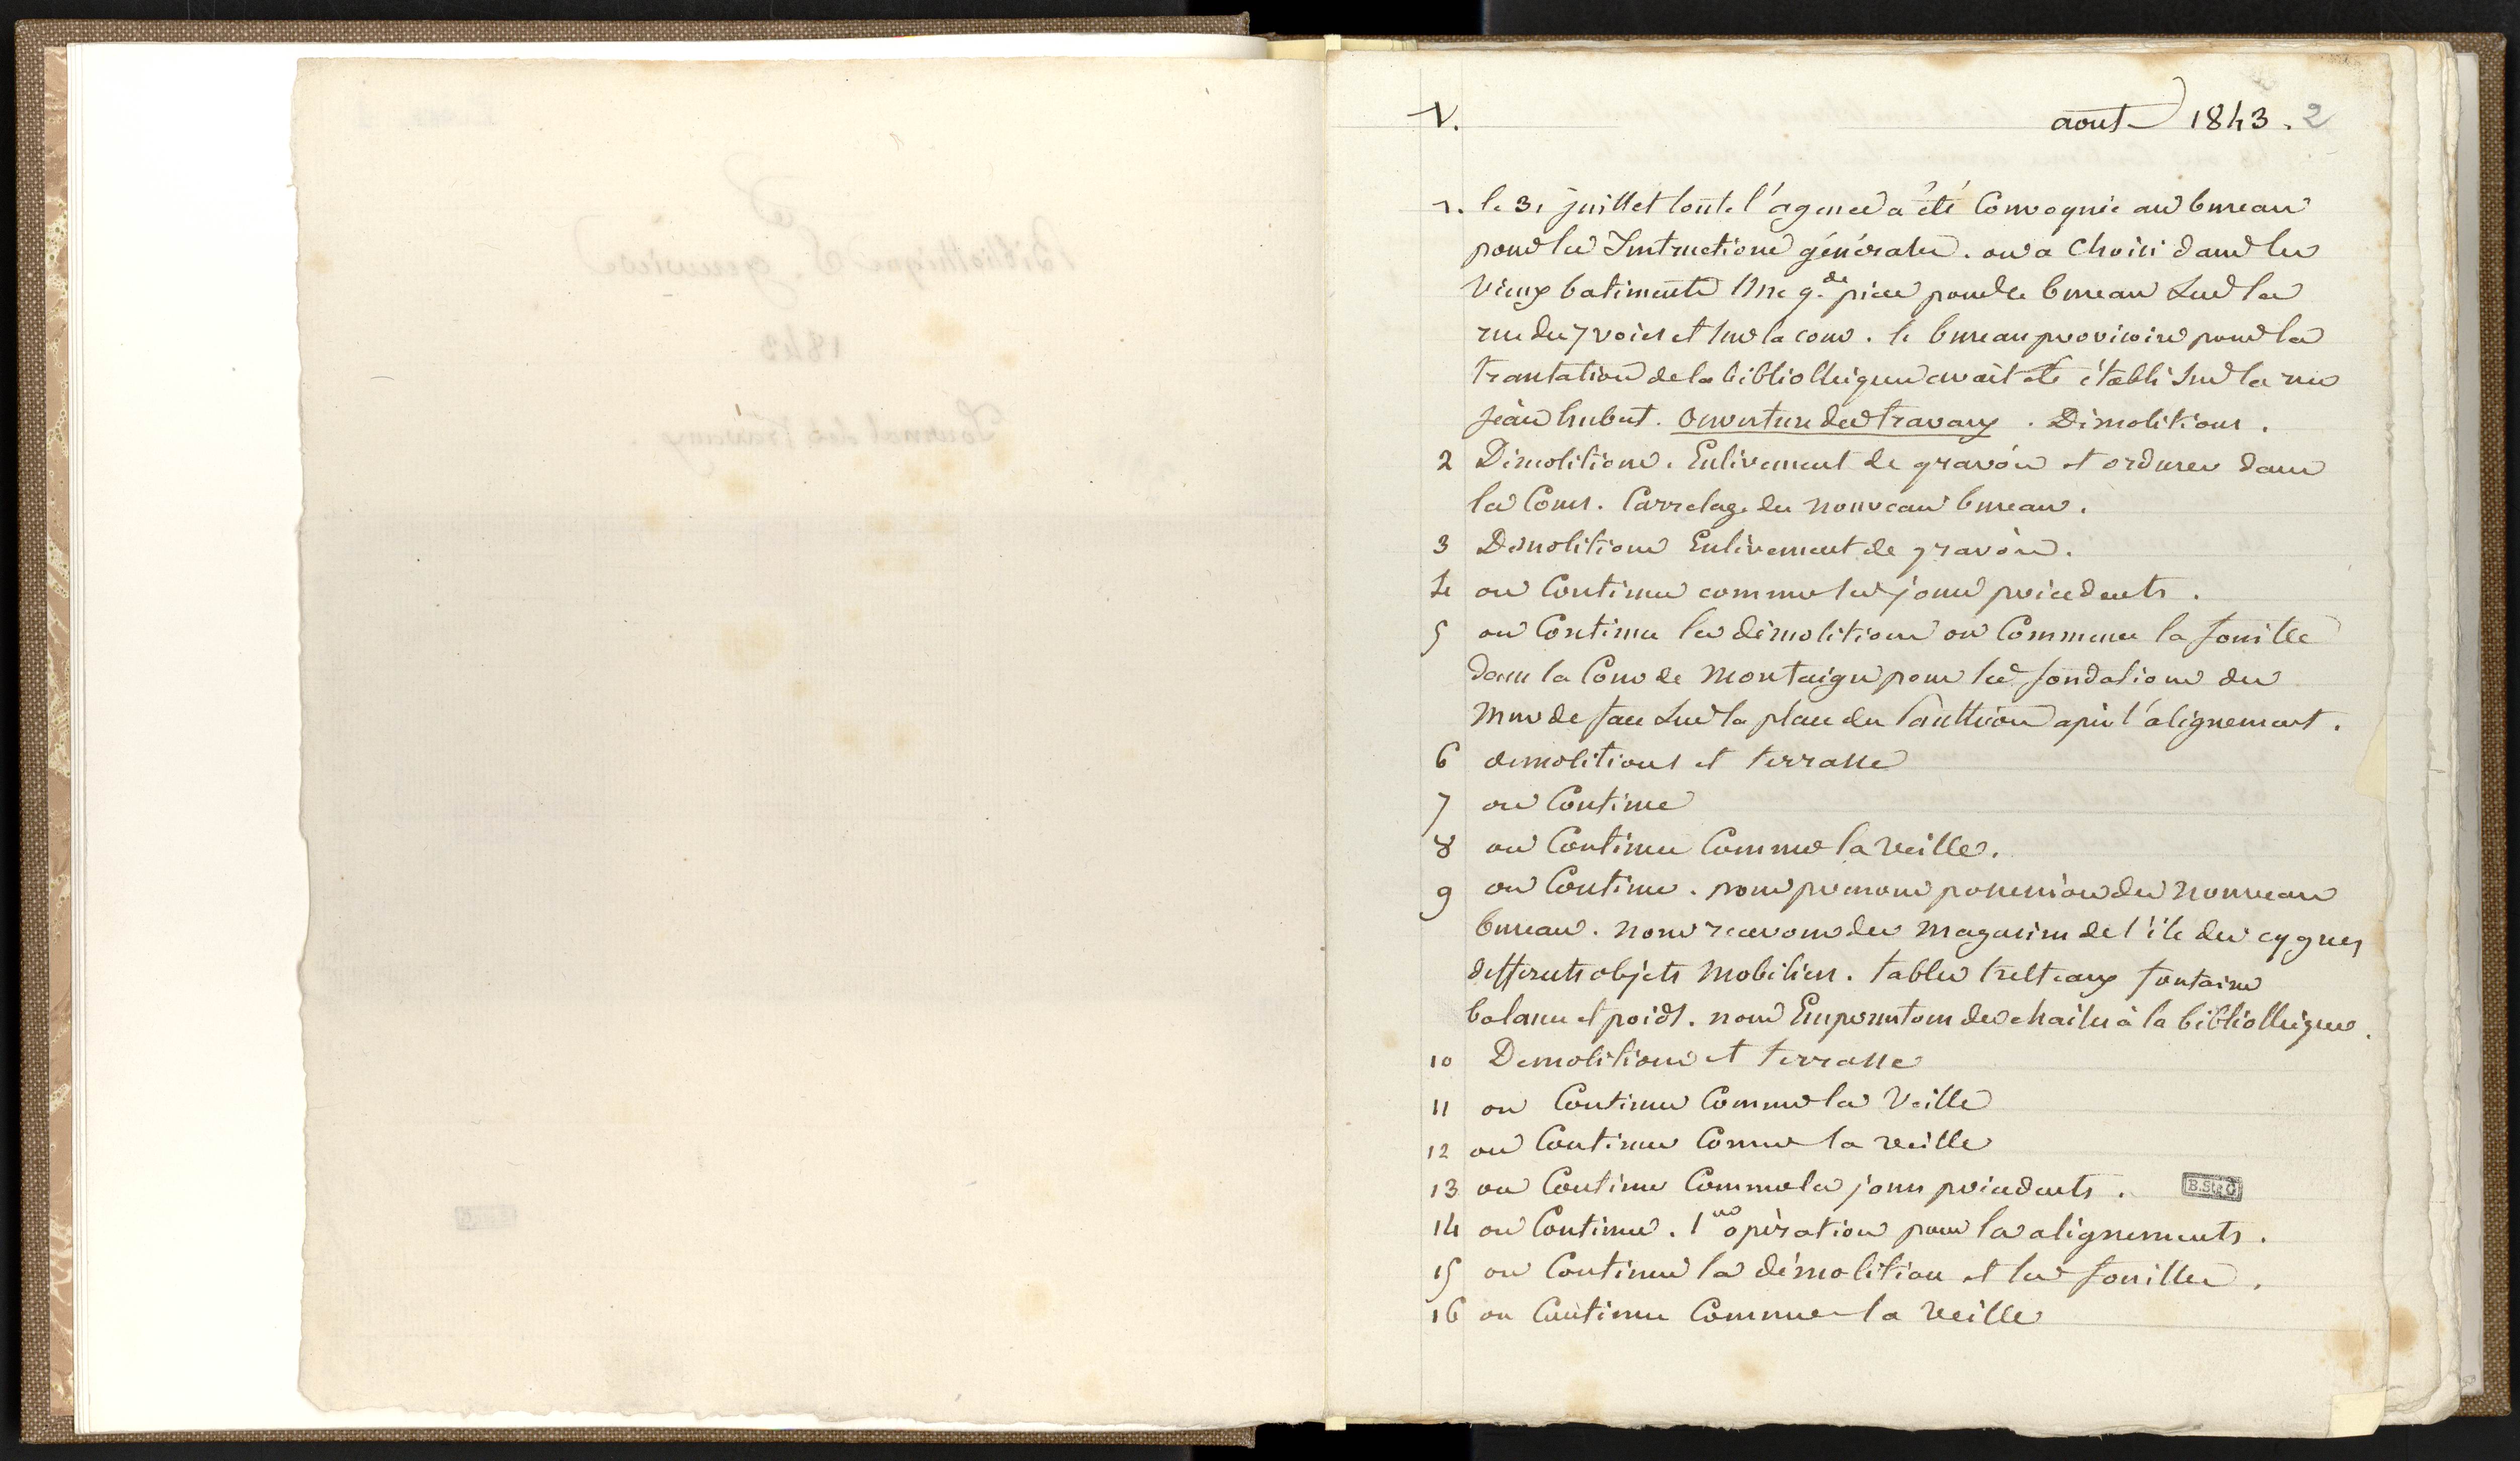 V.
août 1843. 2
1. le 31 juillet toute l'agence a été Convoquée au bureau
pour les Instructions générales. on a choisi dans les
vieux batiments Une g.de pièce pour le bureau sur la
rue des 7 voies et sur la cour. le bureau provisoire pour la
translation de la bibliothèque avait été établi sur la rue
Jean hubert. Ouverture des travaux. Démolitions.
2 Démolitions. Enlèvement de gravois et ordures dans
les Cours. Carrelage du nouveau bureau.
3 Démolitions Enlèvement de gravois.
4 on Continue comme les jours précedents.
5 on Continue les démolitions on Commence la fouille
dans la Cour de Montaigu pour les fondations du
Mur de face sur la place du Panthéon après l'alignement.
6 demolitions et terrasse
7 on Continue
8 on Continue Comme la veille.
9 on Continue. nous prenons possession du nouveau
bureau. nous recevons des magasins de l'île des cygnes
differents objets Mobiliers. tables tretteaux fontaine
balance et poids. nous Empruntons des chaises à la bibliothèque.
10 Demolitions et terrasse
11 on Continue Comme la Veille
12 on Continue Comme la veille
13 on Continue Comme les jours précedents.
B.SteG
14 on Continue. 1re opération pour les alignements.
15 on Continue la démolition et les fouilles.
16 on Continue Comme la Veille